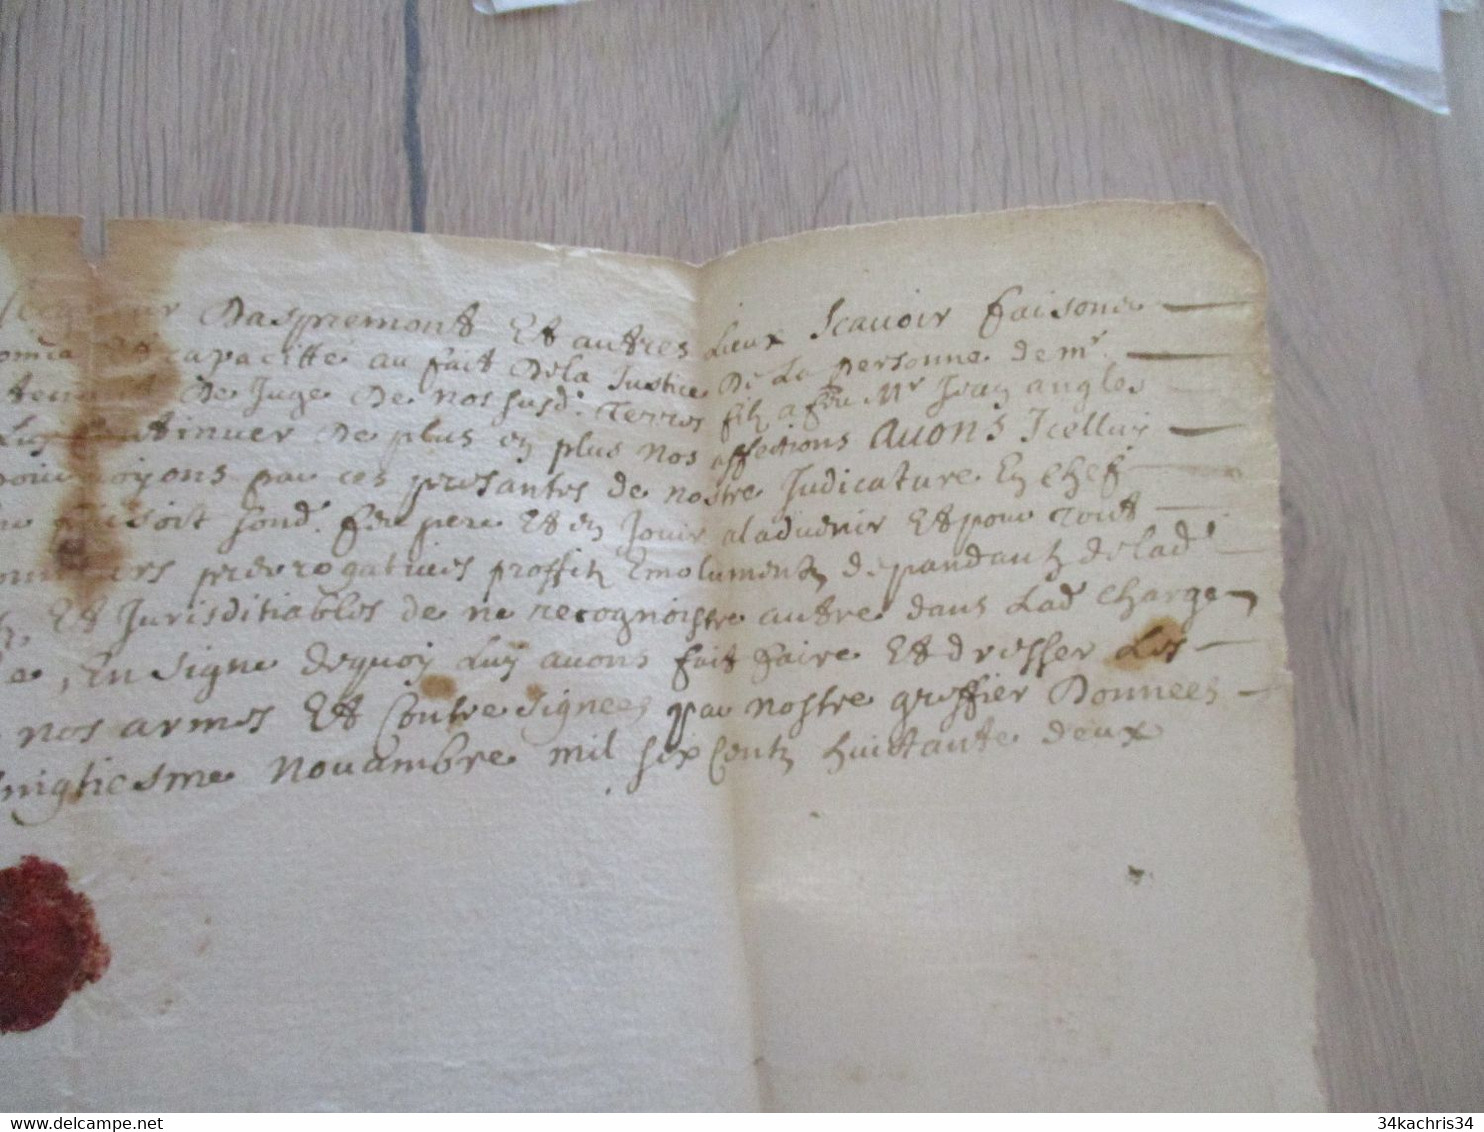 Daspremont Et autres Lieux Scauoir faisons
Et capacitté au fait Dela Justice De La personne de mr.
De Juge De nos susd. Terres filz a feu Mr Jean angles
Luy Continuer De plus en plus nos affections auons Icelluy
par ces presantes de nostre Judicature En chef
soit sond. feu pere Et en Jouir aladuenir Et pour tout
prerrogatiues proffitz Emolumentz depandantz de lad
Et Jurisditiables de ne recognoistre autre dans Lad charge
En signe dequoy Luy auons fait faire Et dresser Les
nos armes Et Contre signees par nostre greffier Donnees
nouambre mil six Centz huittante deux
34kachris34